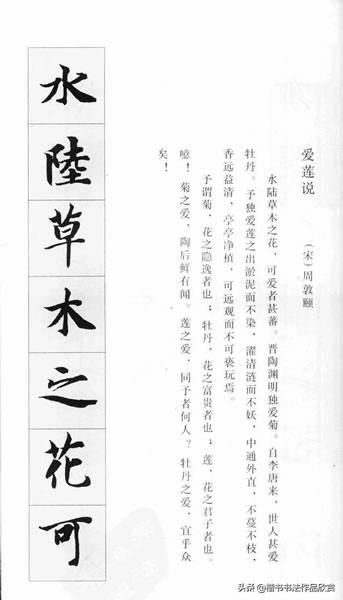 爱莲说
（宋）周敦颐
水陆草木之花，可爱者甚蕃。晋陶渊明独爱菊。自李唐来，世人甚爱
牡丹。予独爱莲之出淤泥而不染，濯清涟而不妖，中通外直，不蔓不枝，
香远益清，亭亭净植，可远观而不可亵玩焉。
予谓菊，花之隐逸者也；牡丹，花之富贵者也；莲，花之君子者也。
噫！菊之爱，陶后鲜有闻。莲之爱，同予者何人？牡丹之爱，宜乎众
矣！
水陸草木之花可
头条@楷书书法作品欣赏